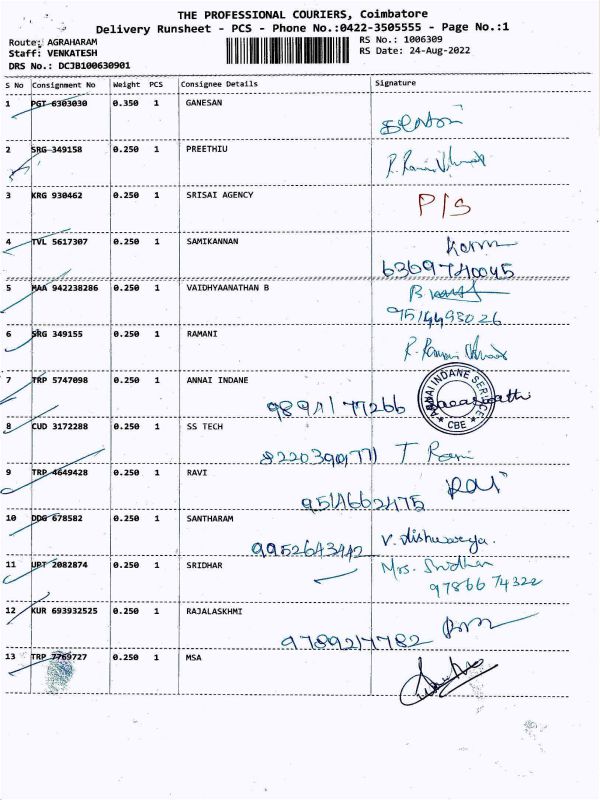 THE PROFESSIONAL COURIERS, Coimbatore
Delivery Runsheet - PCS - Phone No.:0422-3505555 - Page No.:1
Route: AGRAHARAM
RS No.: 1006309
Staff: VENKATESH
RS Date: 24-Aug-2022
DRS No.: DCJB100630901
S No Consignment No Weight PCS Consignee Details Signature
1 PGT 6303030 0.350 1 GANESAN
2 SRG 349158 0.250 1 PREETHIU
3 KRG 930462 0.250 1 SRISAI AGENCY P/S
4 TVL 5617307 0.250 1 SAMIKANNAN
6369740045
5 MAA 942238286 0.250 1 VAIDHYAANATHAN B
9514493026
6 SRG 349155 0.250 1 RAMANI
7 TRP 5747098 0.250 1 ANNAI INDANE
ANNAI INDANE SERVICE
★ CBE ★
8 CUD 3172288 0.250 1 SS TECH
T Rani
9 TRP 4649428 0.250 1 RAVI
Ravi
10 DDG 678582 0.250 1 SANTHARAM
9952643442
11 URT 2082874 0.250 1 SRIDHAR Mrs. Sridhar
9786674322
12 KUR 693932525 0.250 1 RAJALASKHMI
9789217782
13 TRP 7769727 0.250 1 MSA